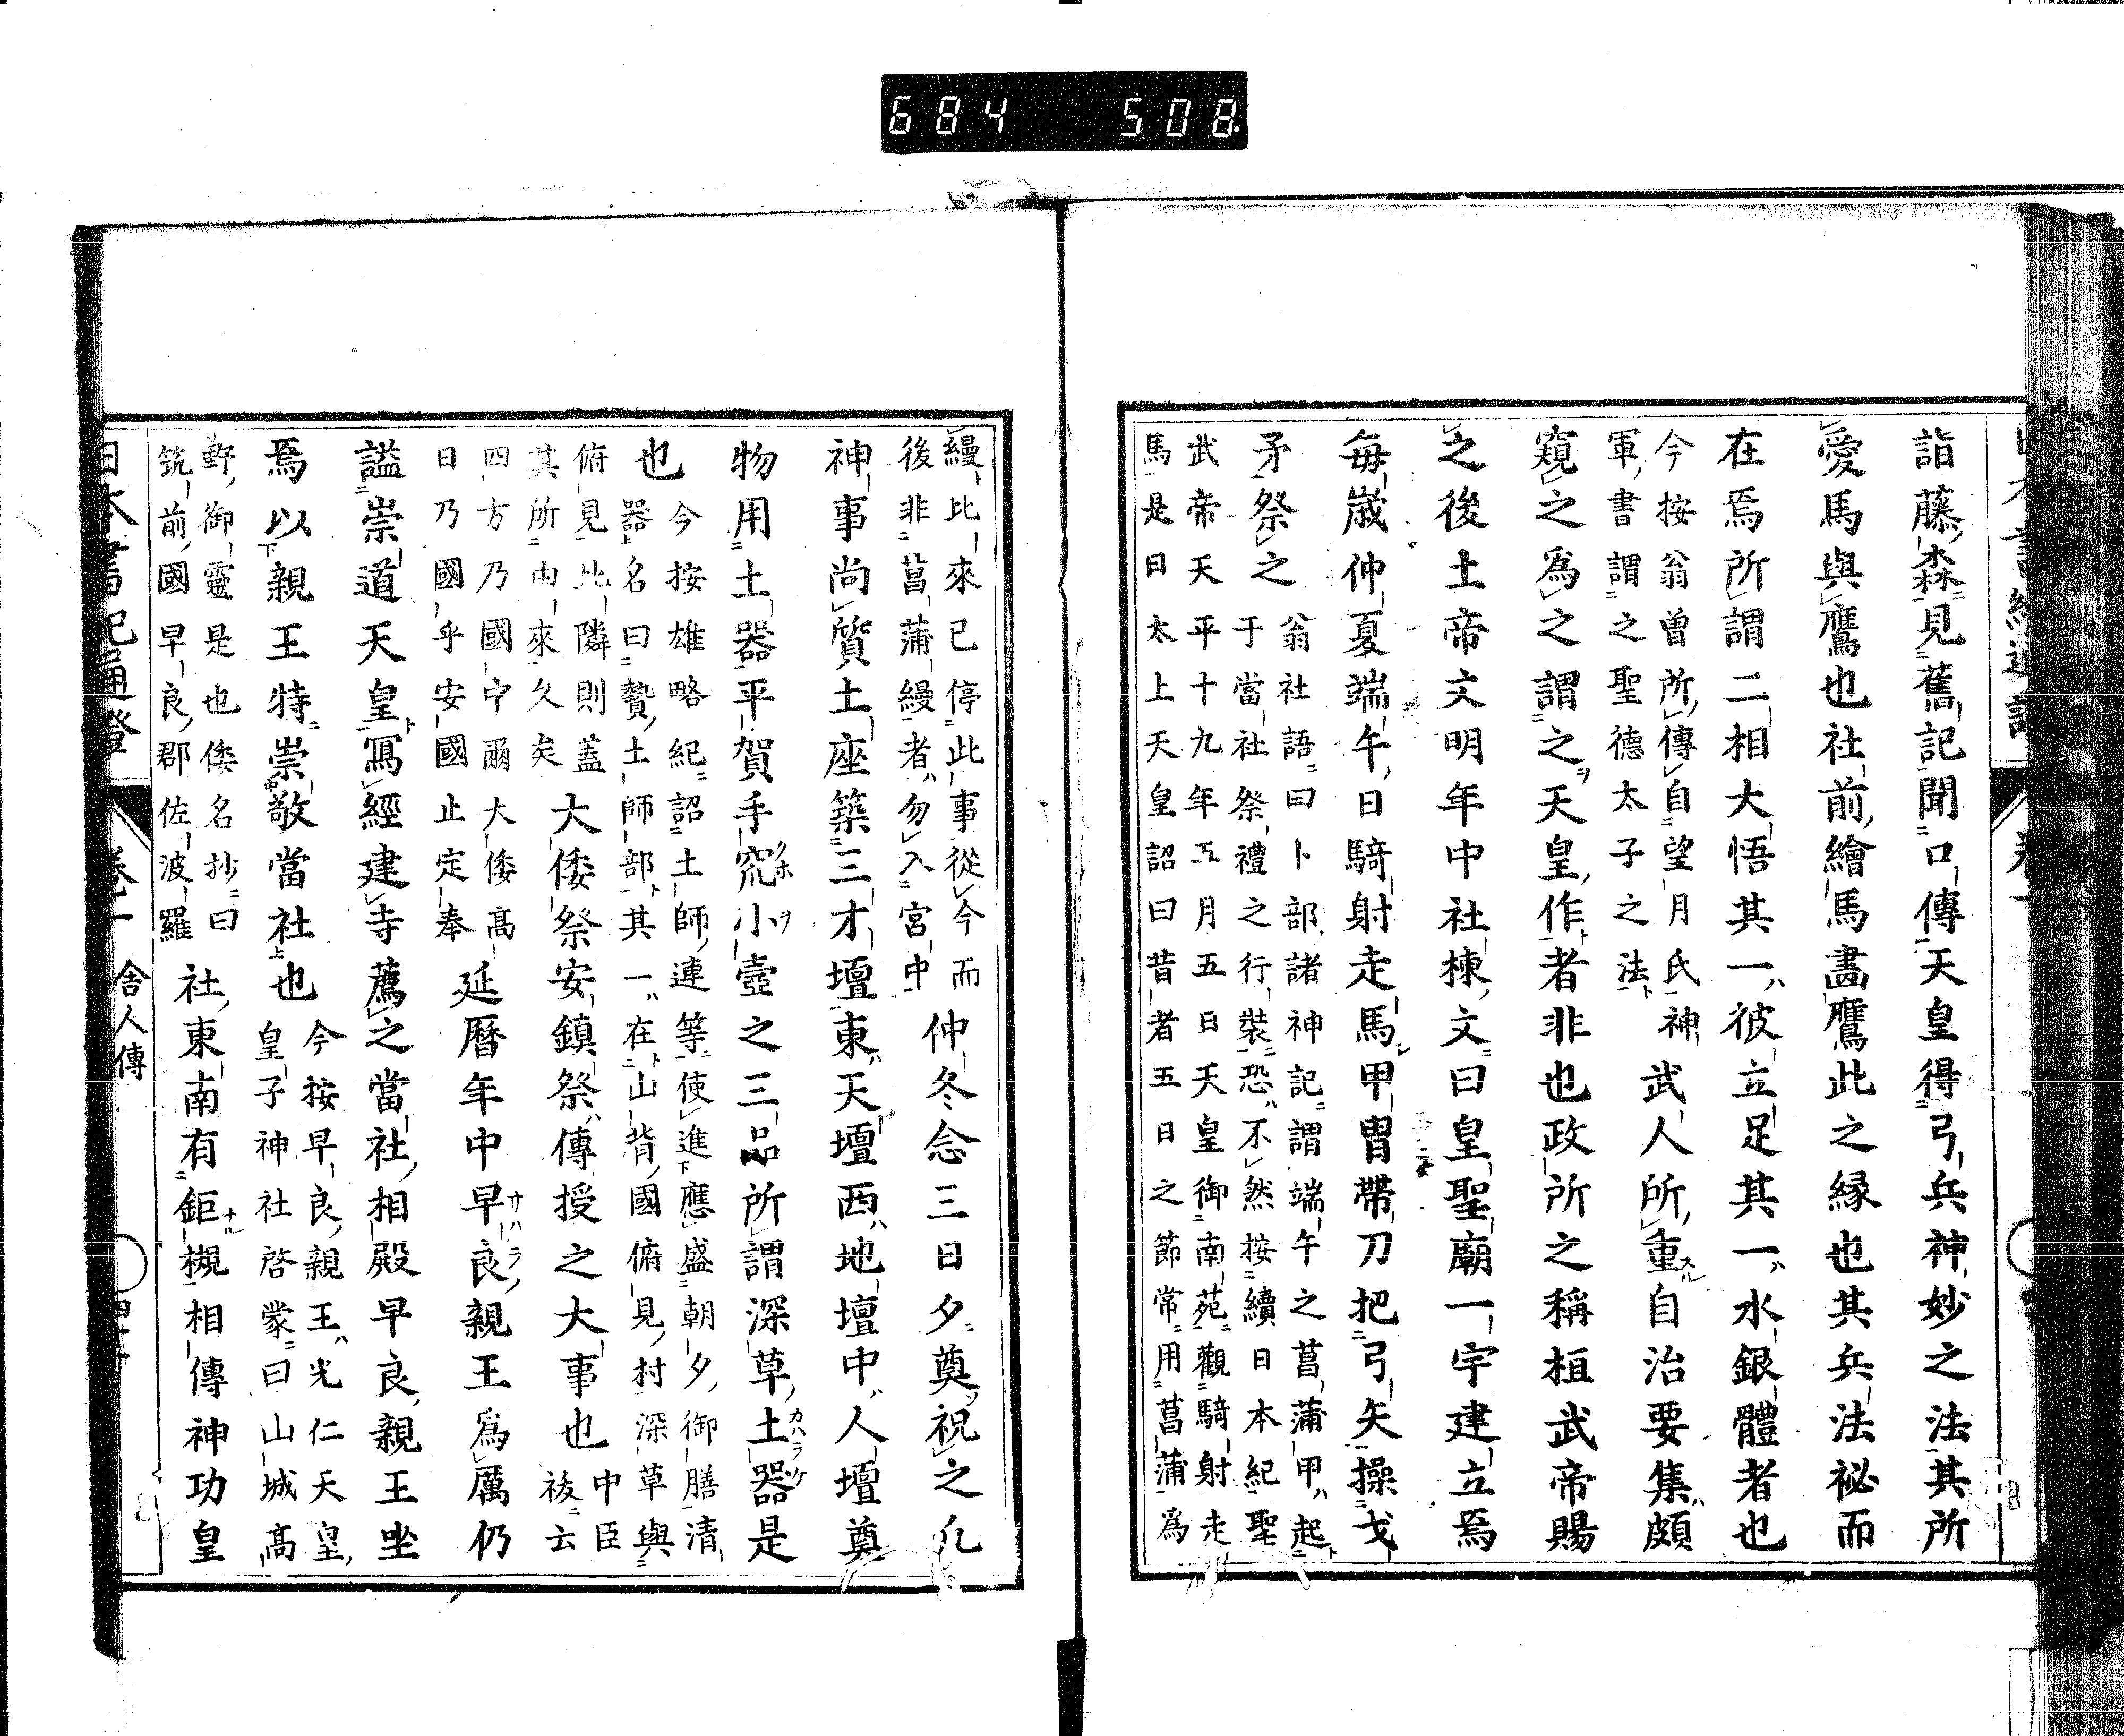 684 508
詣藤森見舊記聞口傳天皇得弓兵神妙之法其所
愛馬與鷹也社前繪馬畵鷹此之緣也其兵法祕而
在焉所謂二相大悟其一彼立足其一水銀體者也
今按翁曾所傳自望月氏神
軍書謂之聖德太子之法
武人所重自治要集頗
窺之為之謂之天皇作者非也政所之稱桓武帝賜
之後土帝文明年中社棟文曰皇聖廟一宇建立焉
每歲仲夏端午日騎射走馬甲冑帶刀把弓矢操戈
矛祭之
翁社語曰卜部諸神記謂端午之菖蒲甲起
于當社祭禮之行裝恐不然按續日本紀聖
武帝天平十九年五月五日天皇御南苑觀騎射走
馬是日太上天皇詔曰昔者五日之節常用菖蒲為
縵比來已停此事從今而
後非菖蒲縵者勿入宮中
仲冬念三日夕奠祝之凡
神事尚質土座築三才壇東天壇西地壇中人壇奠
物用土器平賀手窊小壺之三品所謂深草土器是
也
今按雄略紀詔土師連等使進應盛朝夕御膳清
器名曰贄土師部其一在山背國俯見村深草與
俯見比隣則蓋
其所由來久矣
大倭祭安鎮祭傳授之大事也
中臣
祓云
四方乃國中爾大倭高
日乃國乎安國止定奉
延曆年中早良親王為厲仍
謚崇道天皇寫經建寺薦之當社相殿早良親王坐
焉以親王特崇敬當社也
今按早良親王光仁天皇
皇子神社啓蒙曰山城高
野御靈是也倭名抄曰
筑前國早良郡佐波羅
社東南有鉅槻相傳神功皇
日本書紀通證
卷一
舍人傳